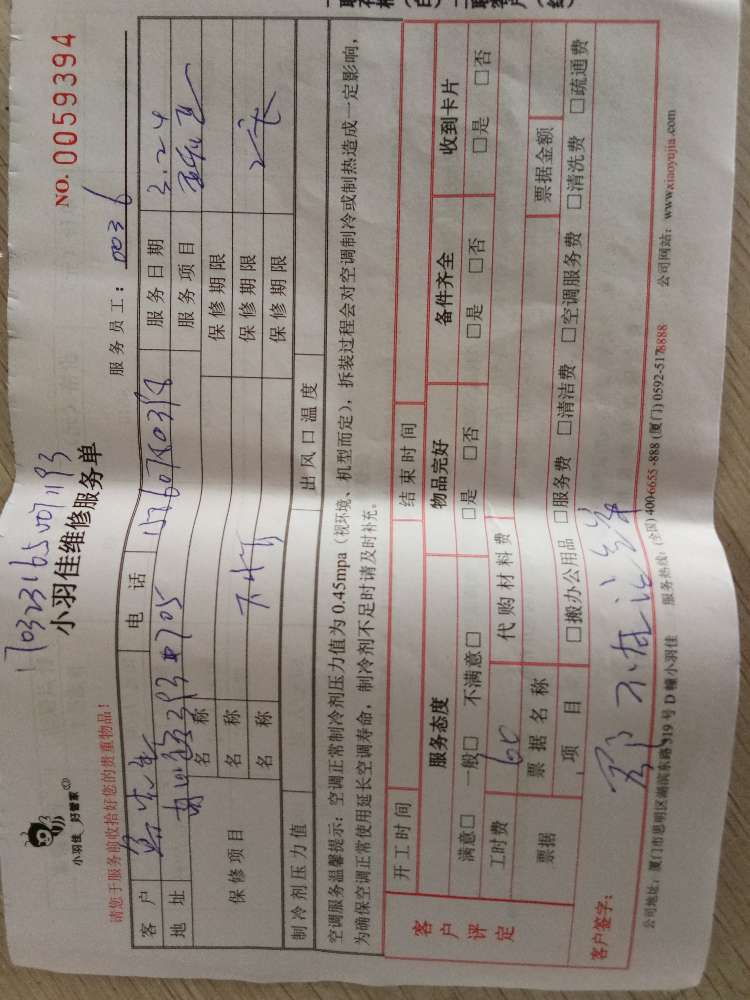 小羽佳 好管家
NO. 0059394
小羽佳维修服务单
请您于服务前收拾好您的贵重物品!
服务员工: 0036
客户
电话
服务日期 3.24
地址
服务项目
保修项目
名称
保修期限
名称
保修期限
名称
保修期限
制冷剂压力值
出风口温度
空调服务温馨提示: 空调正常制冷剂压力值为 0.45mpa (视环境、机型而定), 拆装过程会对空调制冷或制热造成一定影响,
为确保空调正常使用延长空调寿命, 制冷剂不足时请及时补充。
客户评定
开工时间
结束时间
服务态度
物品完好
备件齐全
收到卡片
满意□ 一般□ 不满意□
□是 □否
□是 □否
□是 □否
工时费 60
代购材料费
票据
票据名称
票据金额
项目
□搬办公用品 □服务费 □清洁费 □空调服务费 □清洗费 □疏通费
客户签字:
公司地址: 厦门市思明区湖滨东路319号D幢小羽佳 服务热线: (全国) 400-6655-888 (厦门) 0592-5178888 公司网站: www.xiaoyujia.com